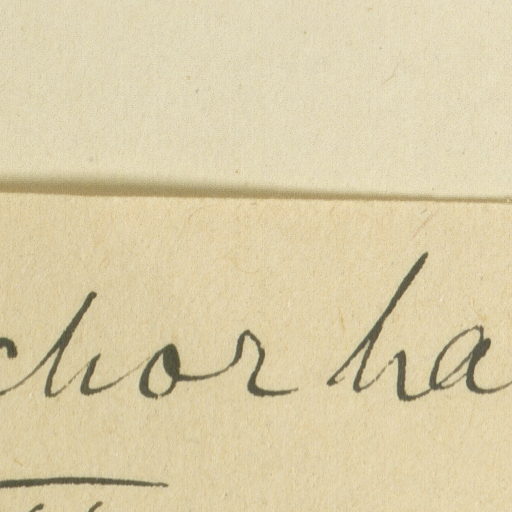 chor ha